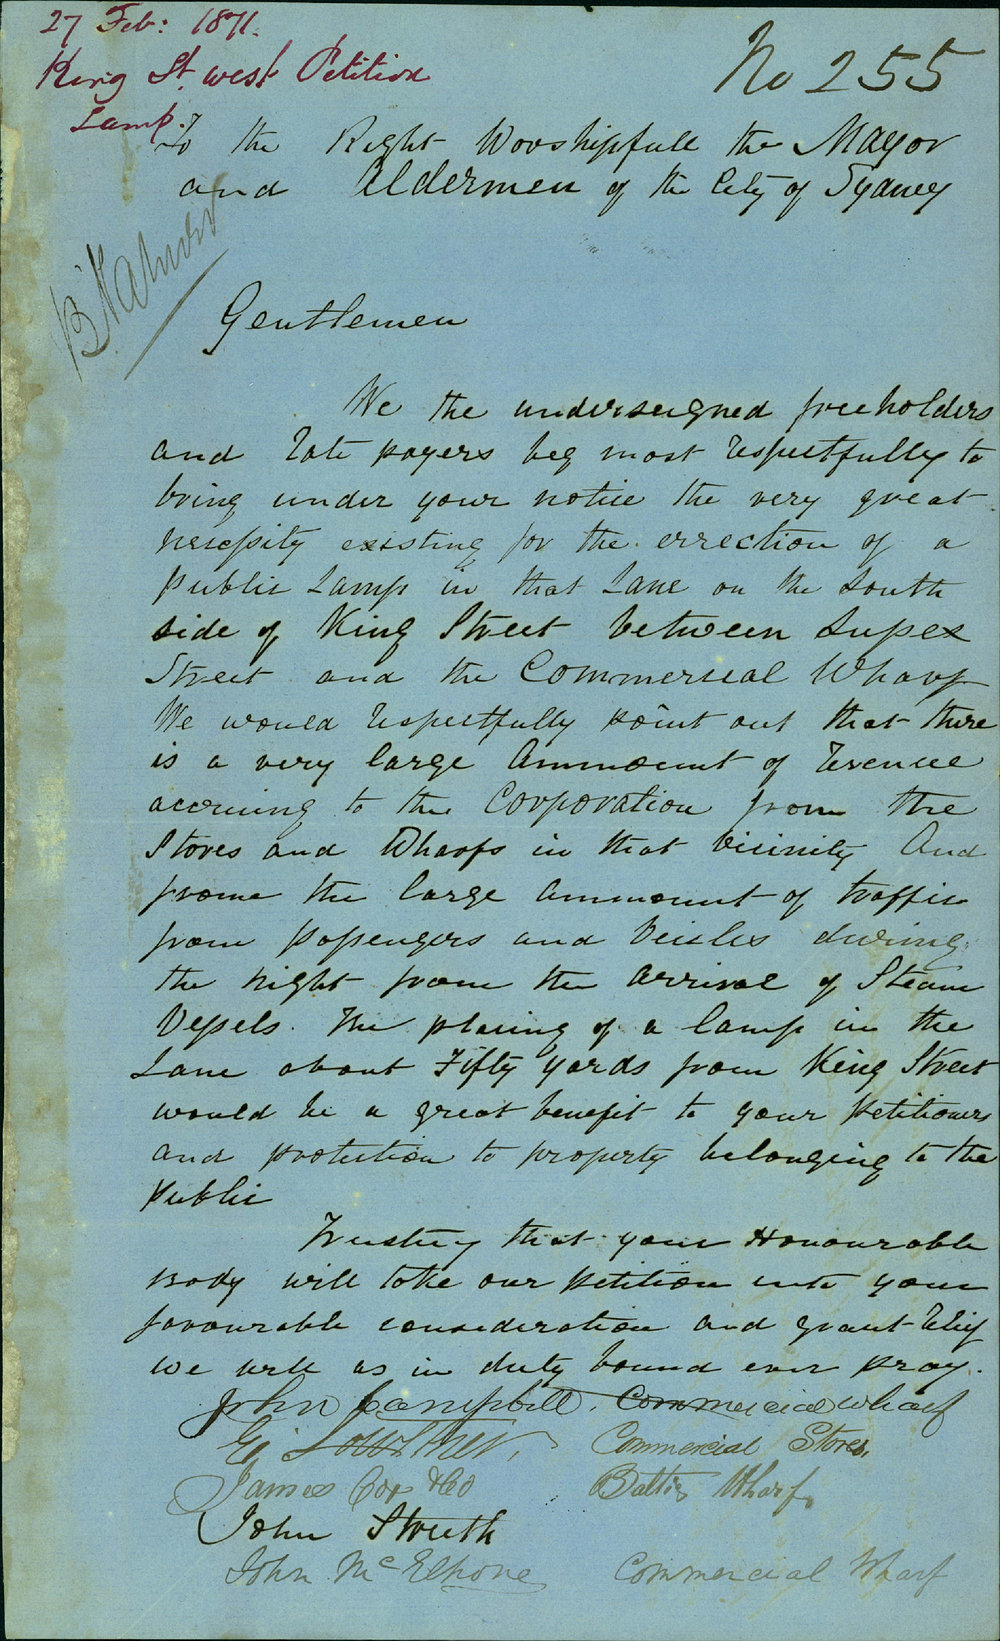 27 Feb: 1871.
King St. west Petition
Lamp.
No 255
To the Right Worshipfull the Mayor
and Aldermen of the City of Sydney
Gentlemen
We the underseigned freeholders
and rate payers beg most respectfully to
bring under your notice the very great
necessity existing for the errection of a
Public Lamp in that Lane on the South
side of King Street between Sussex
Street and the Commerseal Wharf
We would respectfully point out that there
is a very large Ammount of Revenue
accruing to the Corporation from the
Stores and Wharfs in that Vicinity And
frome the large ammount of traffic
from passengers and Veicles during
the night from the arrival of Steam
Vessels. The placing of a lamp in the
Lane about Fifty yards from King Street
would be a great benefit to your petitioners
and protection to property belonging to the
Public
Trusting that your Honourable
Body will take our petition into your
favourable consideration and grant relief
we will as in duty bound ever pray.
John Campbell. Commercial Wharf
G. Lowther. Commercial Stores.
James Cox & Co Baltic Wharf.
John Struth
John McElhone Commercial Wharf